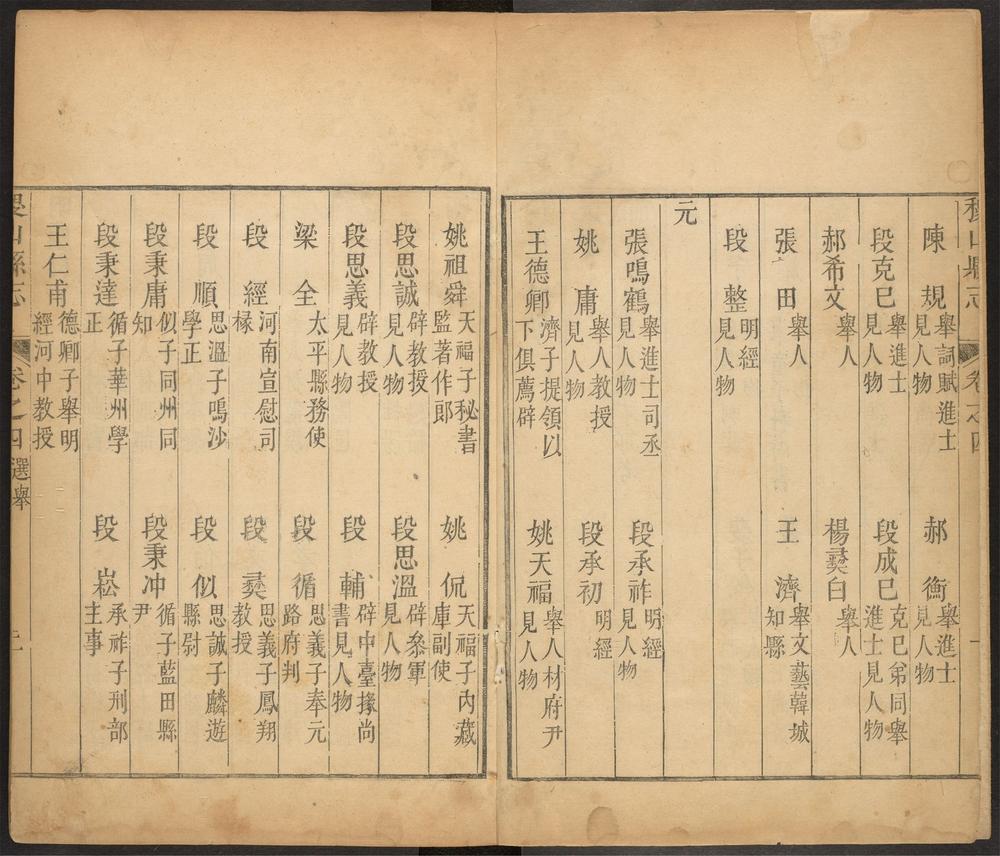 稷山縣志 卷之四
陳規 舉詞賦進士見人物 郝衡 舉進士見人物
段克己 舉進士見人物 段成己 克己弟同舉進士見人物
郝希文 舉人 楊彞白 舉人
張田 舉人 王濟 舉文藝韓城知縣
段整 明經見人物
元
張鳴鶴 舉進士司丞見人物 段承祚 明經見人物
姚庸 舉人教授見人物 段承初 明經
王德卿 濟子提領以下俱薦辟 姚天福 舉人材府尹見人物
姚祖舜 天福子秘書監著作郎 姚侃 天福子内藏庫副使
段思誠 辟教授見人物 段思溫 辟叅軍見人物
段思義 辟教授見人物 段輔 辟中臺掾尚書見人物
梁全 太平縣務使 段循 思義子奉元路府判
段經 河南宣慰司椽 段彞 思義子鳳翔教授
段順 思溫子鳴沙學正 段似 思誠子麟遊縣尉
段秉庸 似子同州同知 段秉冲 循子藍田縣尹
段秉達 循子華州學正 段崧 承祚子刑部主事
王仁甫 德卿子舉明經河中教授
稷山縣志 卷之四 選舉